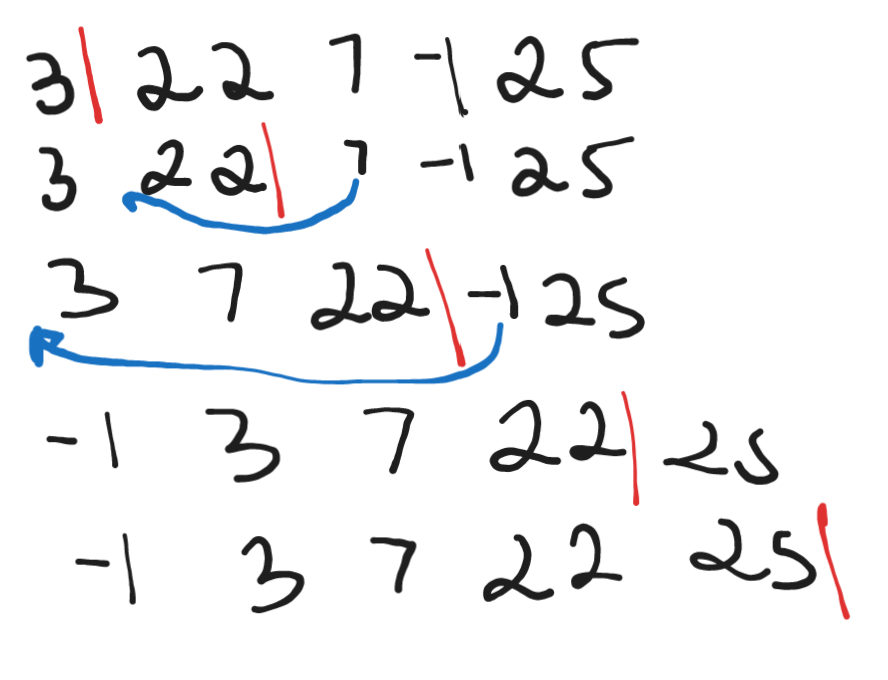 3 22 7 -1 25
3 22 7 -1 25
3 7 22 -1 25
-1 3 7 22 25
-1 3 7 22 25